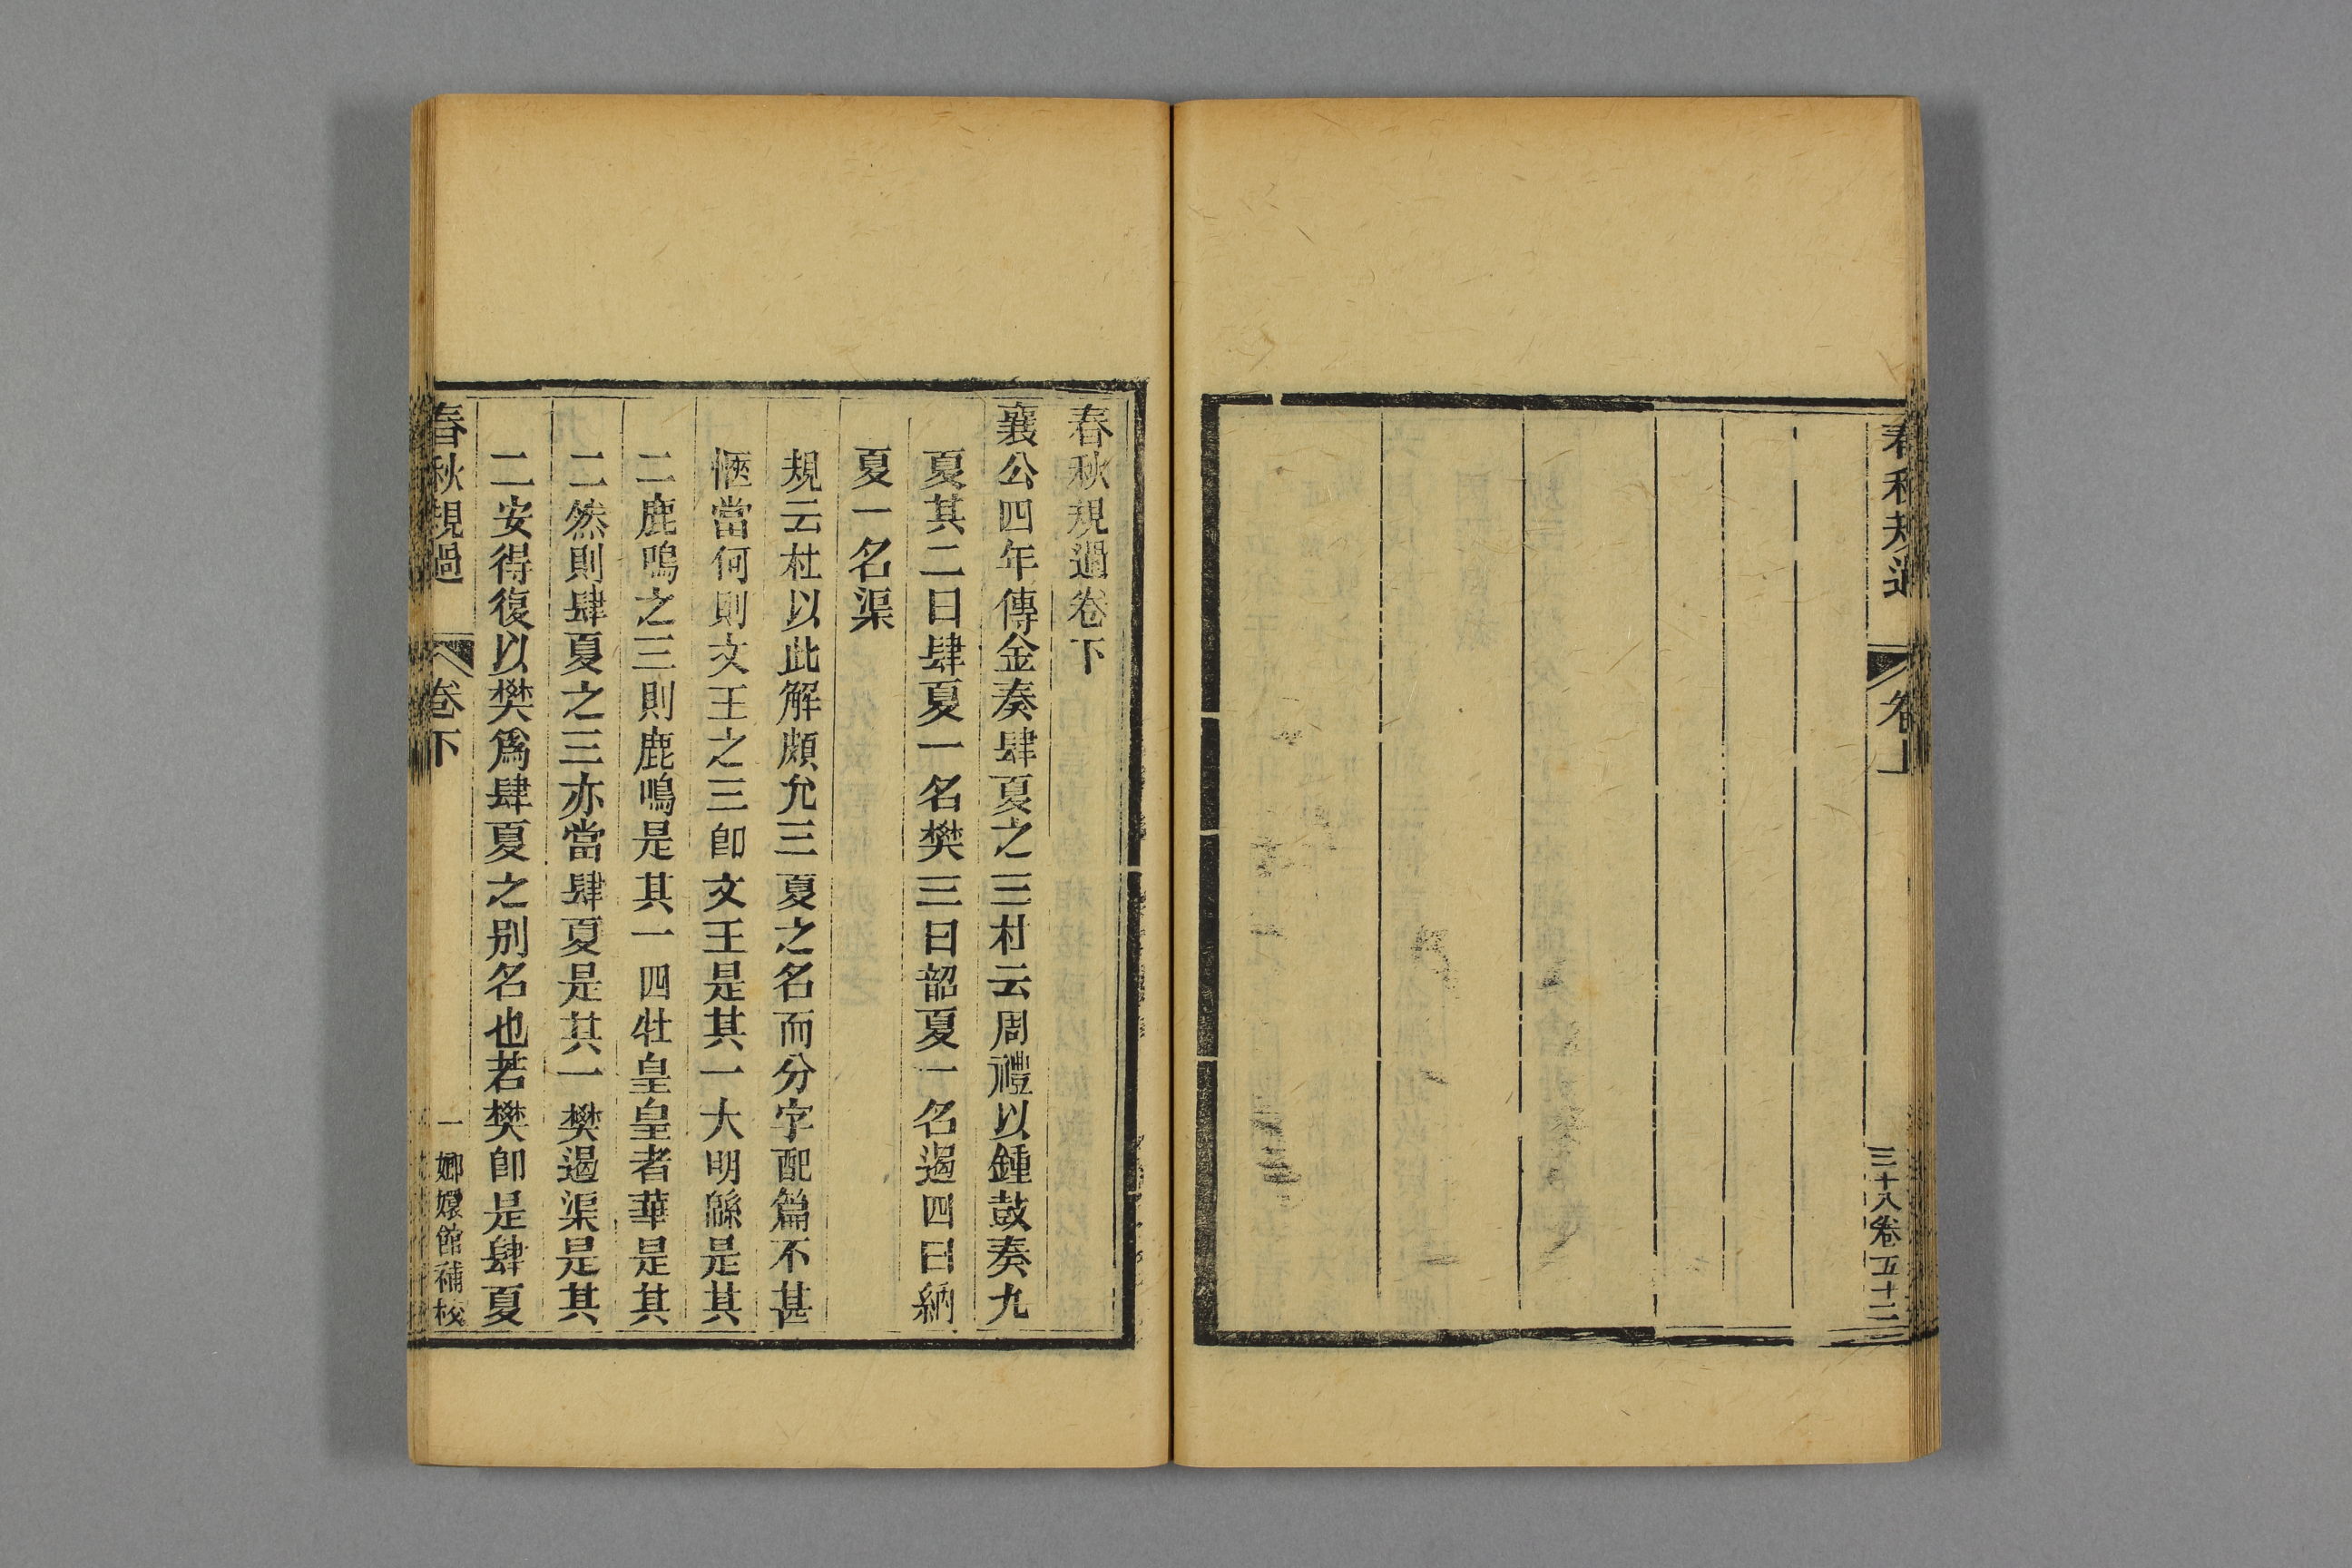 春秋規過
卷上
三十八卷五十二
春秋規過卷下
襄公四年傳金奏肆夏之三杜云周禮以鍾鼓奏九
夏其二曰肆夏一名樊三曰韶夏一名遏四曰納
夏一名渠
規云杜以此解頗允三夏之名而分字配篇不甚
愜當何則文王之三卽文王是其一大明緜是其
二鹿鳴之三則鹿鳴是其一四牡皇皇者華是其
二然則肆夏之三亦當肆夏是其一樊遏渠是其
二安得復以樊爲肆夏之别名也若樊卽是肆夏
春秋規過
卷下
一
嫏嬛館補校